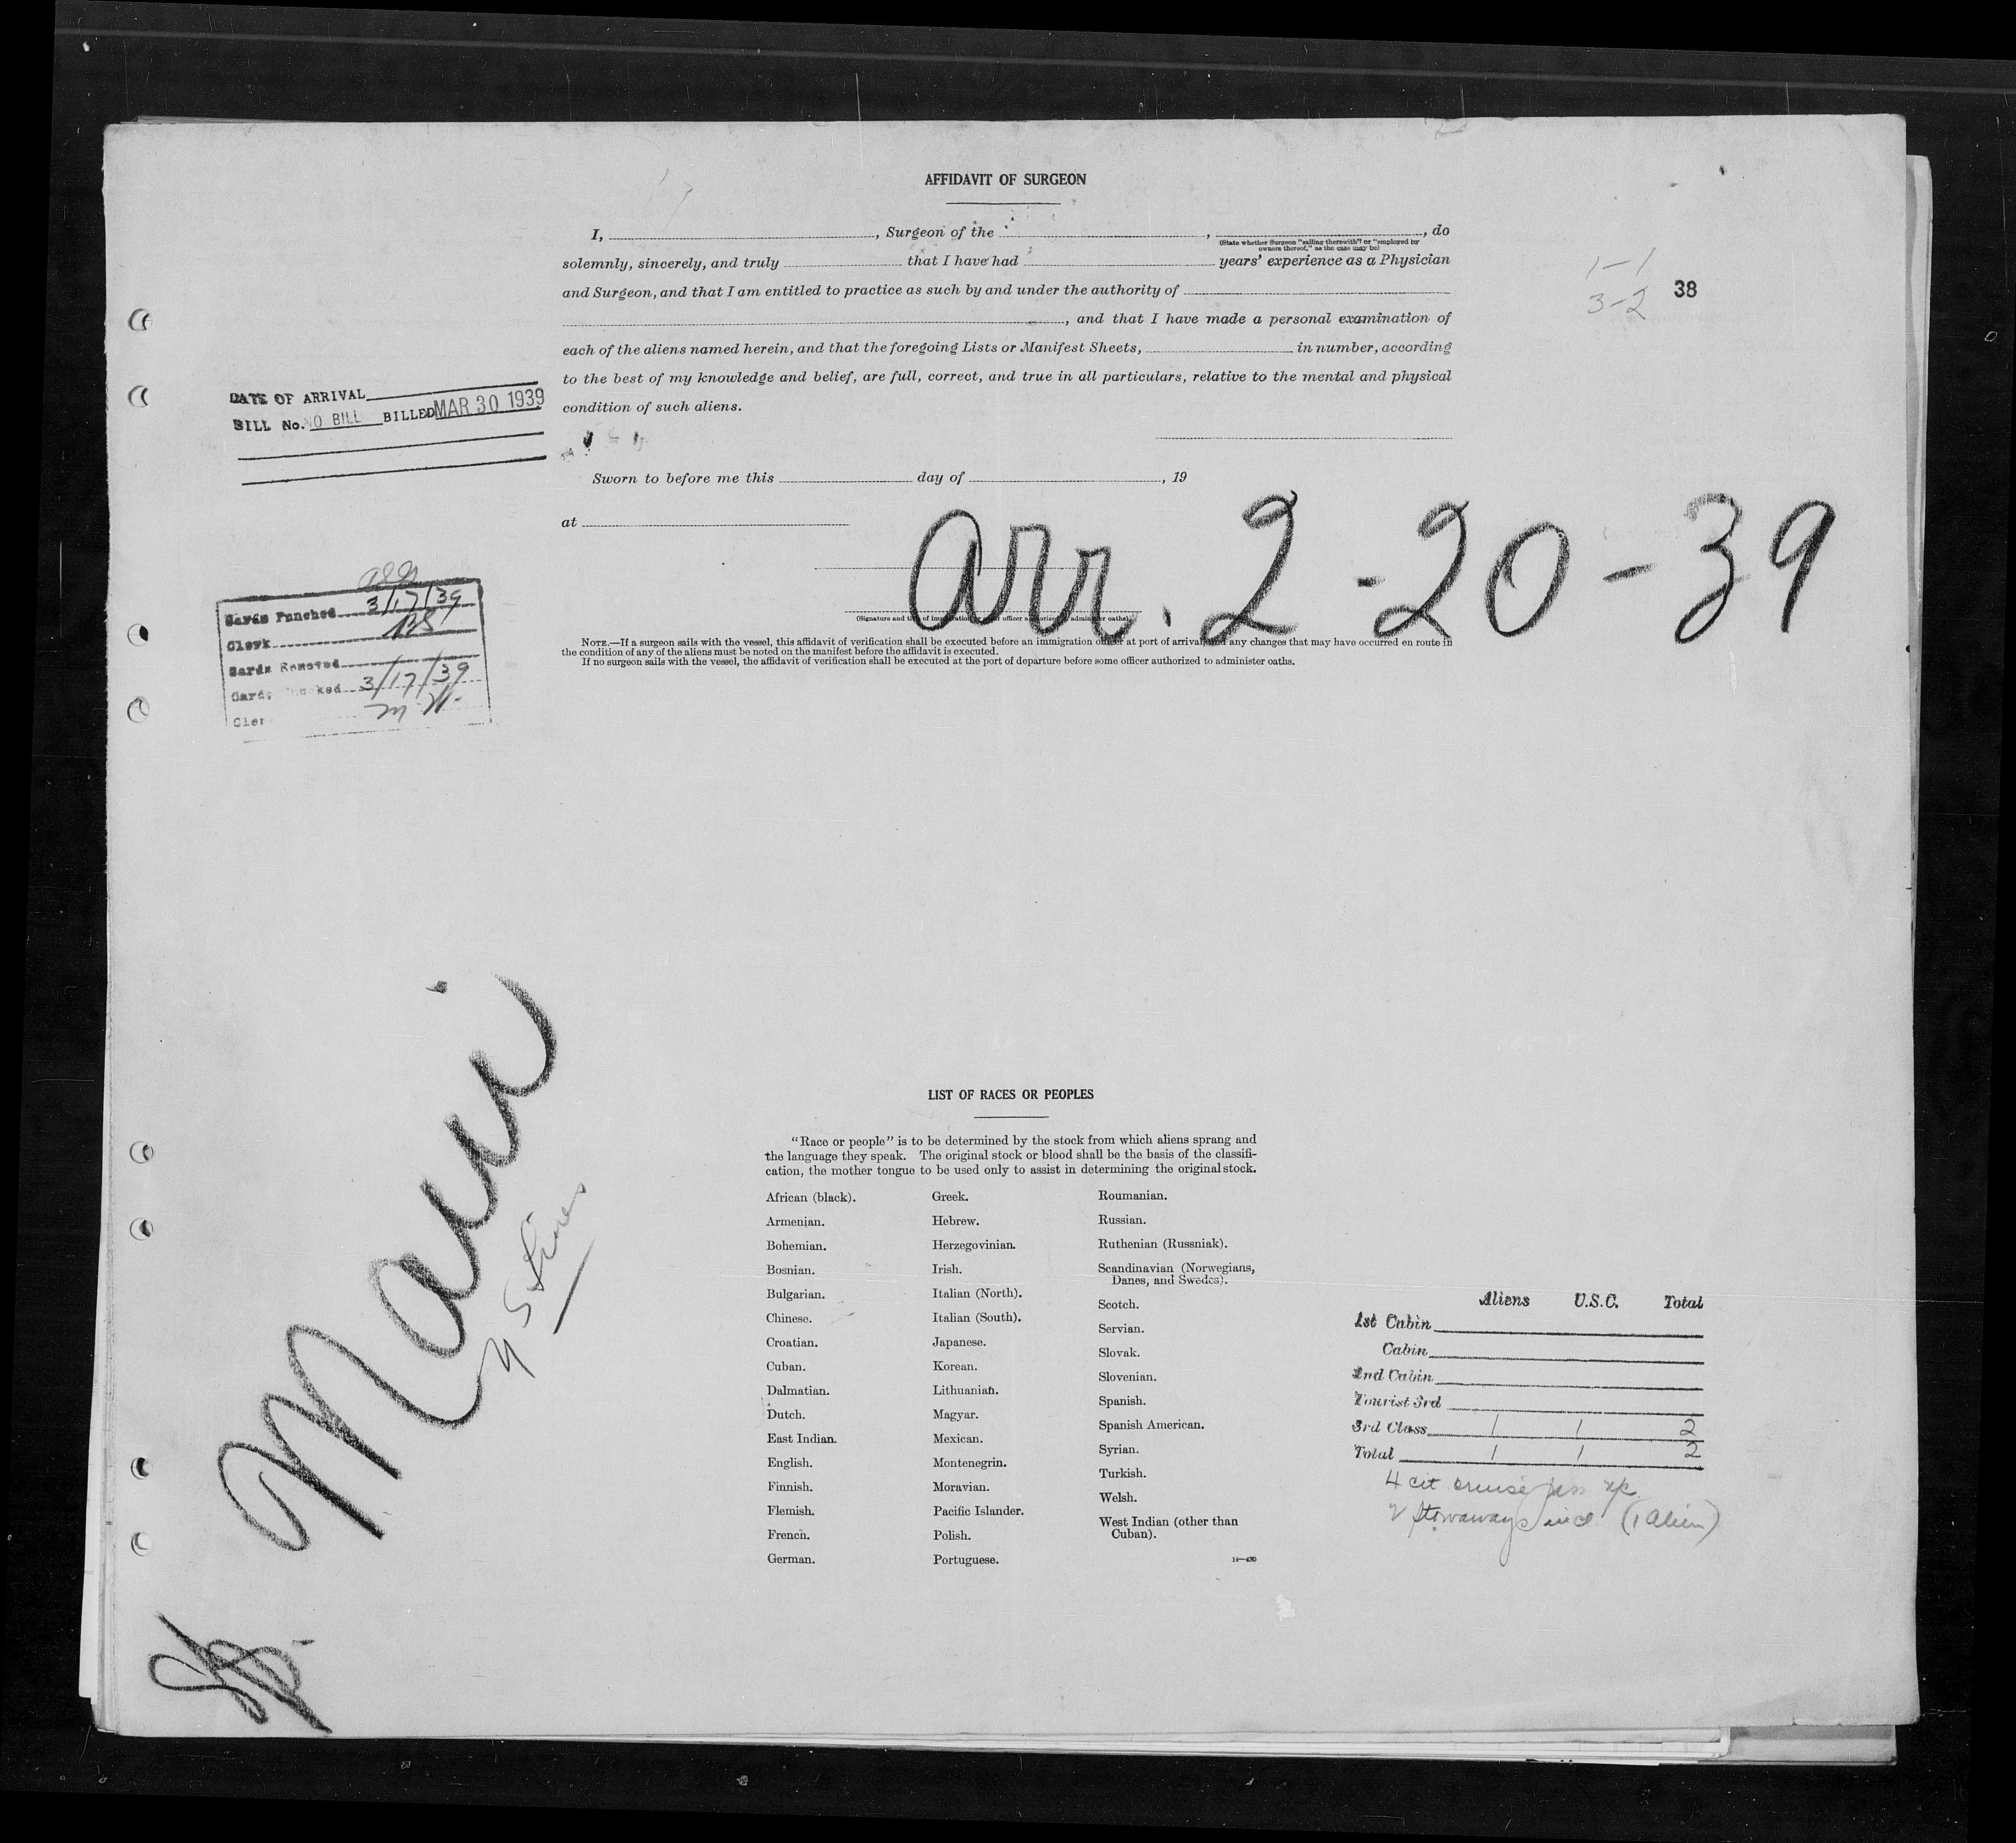 AFFIDAVIT OF SURGEON
I, , Surgeon of the , , do
(State whether Surgeon "sailing therewith" or "employed by
owners thereof," as the case may be)
solemnly, sincerely, and truly that I have had years' experience as a Physician
and Surgeon, and that I am entitled to practice as such by and under the authority of
, and that I have made a personal examination of
each of the aliens named herein, and that the foregoing Lists or Manifest Sheets, in number, according
to the best of my knowledge and belief, are full, correct, and true in all particulars, relative to the mental and physical
condition of such aliens.
1-1
3-2
38
DATE OF ARRIVAL
BILL No. NO BILL BILLED MAR 30 1939
Sworn to before me this day of , 19
at
arr. 2-20-39
(Signature and title of immigration or other officer authorized to administer oaths)
NOTE.—If a surgeon sails with the vessel, this affidavit of verification shall be executed before an immigration officer at port of arrival, and any changes that may have occurred en route in
the condition of any of the aliens must be noted on the manifest before the affidavit is executed.
If no surgeon sails with the vessel, the affidavit of verification shall be executed at the port of departure before some officer authorized to administer oaths.
Cards Punched 3/17/39
Clerk
Cards Removed
Cards Checked 3/17/39
Clerk
LIST OF RACES OR PEOPLES
"Race or people" is to be determined by the stock from which aliens sprang and
the language they speak. The original stock or blood shall be the basis of the classifi-
cation, the mother tongue to be used only to assist in determining the original stock.
African (black).
Armenian.
Bohemian.
Bosnian.
Bulgarian.
Chinese.
Croatian.
Cuban.
Dalmatian.
Dutch.
East Indian.
English.
Finnish.
Flemish.
French.
German.
Greek.
Hebrew.
Herzegovinian.
Irish.
Italian (North).
Italian (South).
Japanese.
Korean.
Lithuanian.
Magyar.
Mexican.
Montenegrin.
Moravian.
Pacific Islander.
Polish.
Portuguese.
Roumanian.
Russian.
Ruthenian (Russniak).
Scandinavian (Norwegians,
Danes, and Swedes).
Scotch.
Servian.
Slovak.
Slovenian.
Spanish.
Spanish American.
Syrian.
Turkish.
Welsh.
West Indian (other than
Cuban).
14—430
Aliens U.S.C. Total
1st Cabin
Cabin
2nd Cabin
Tourist 3rd
3rd Class 1 1 2
Total 1 1 2
4 cit cruise pass
2 Stowaways incl. (1 alien)